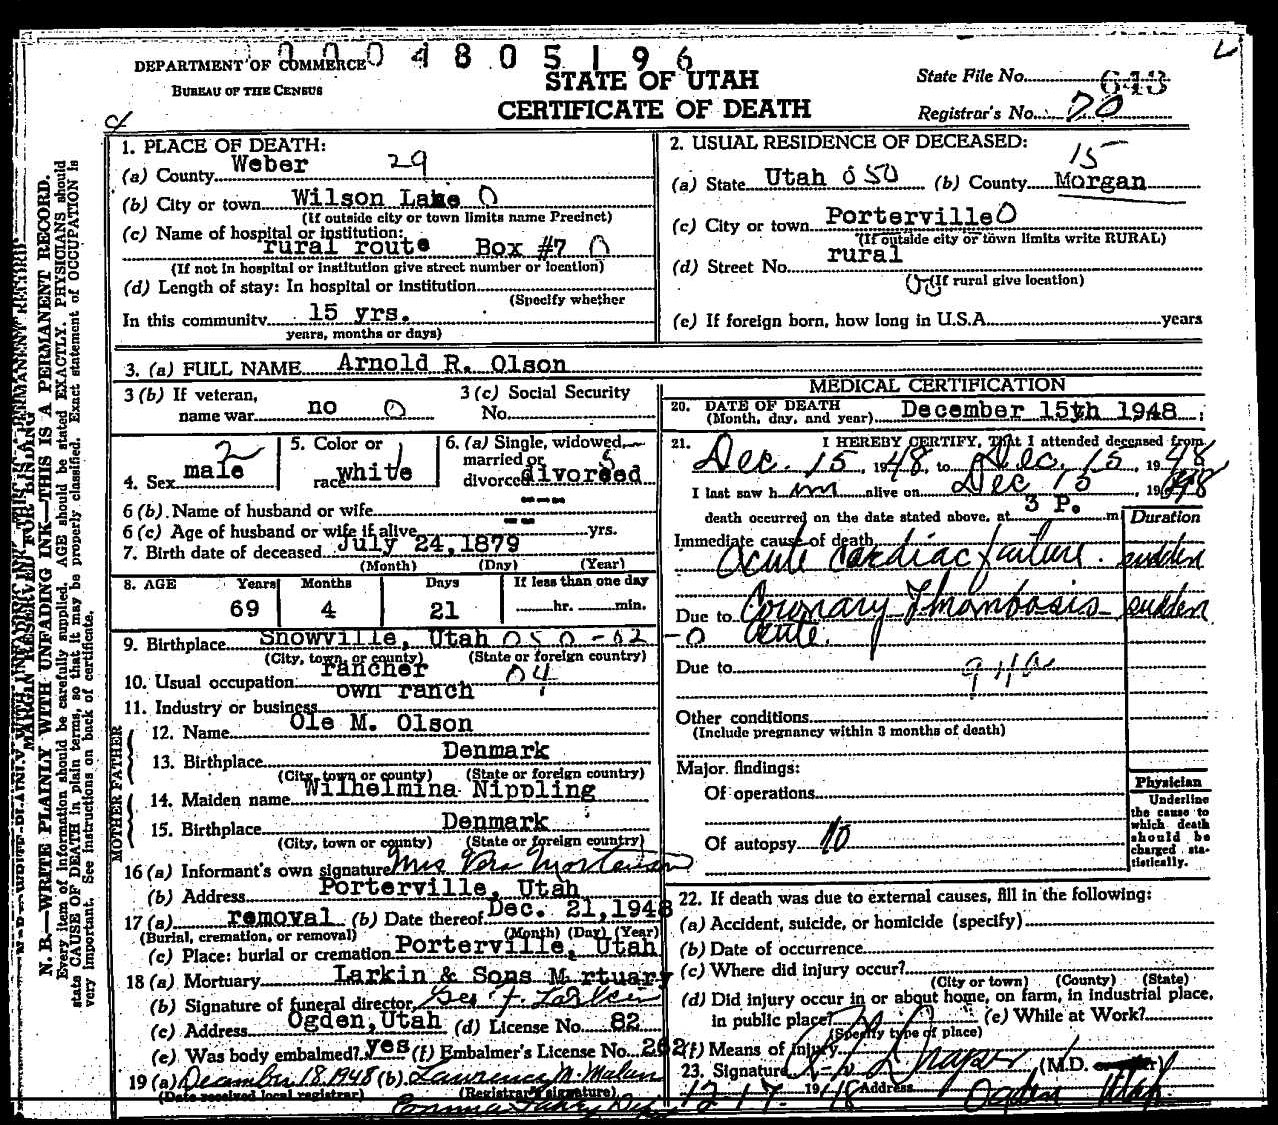 0004805196
DEPARTMENT OF COMMERCE
BUREAU OF THE CENSUS
STATE OF UTAH
CERTIFICATE OF DEATH
State File No. 643
Registrar's No. 70
1. PLACE OF DEATH:
(a) County Weber 29
(b) City or town Wilson Lane 0
(If outside city or town limits name Precinct)
(c) Name of hospital or institution:
rural route Box #7 0
(If not in hospital or institution give street number or location)
(d) Length of stay: In hospital or institution
(Specify whether
In this community 15 yrs.
years, months or days)
2. USUAL RESIDENCE OF DECEASED:
15
(a) State Utah 050 (b) County Morgan
(c) City or town Porterville 0
(If outside city or town limits write RURAL)
(d) Street No. rural
(If rural give location)
(e) If foreign born, how long in U.S.A. years
3. (a) FULL NAME Arnold R. Olson
3 (b) If veteran, name war no 0
3 (c) Social Security No.
4. Sex male 2
5. Color or race white 1
6. (a) Single, widowed, married or divorced divorced 5
6 (b). Name of husband or wife ---
6 (c) Age of husband or wife if alive -- yrs.
7. Birth date of deceased July 24, 1879
(Month) (Day) (Year)
8. AGE Years Months Days If less than one day
69 4 21 hr. min.
9. Birthplace Snowville, Utah 050-02-0
(City, town, or county) (State or foreign country)
10. Usual occupation rancher 04
11. Industry or business own ranch
FATHER
12. Name Ole M. Olson
13. Birthplace Denmark
(City, town or county) (State or foreign country)
MOTHER
14. Maiden name Wilhelmina Nippling
15. Birthplace Denmark
(City, town or county) (State or foreign country)
16 (a) Informant's own signature Mrs Vera Mortensen
(b) Address Porterville, Utah
17 (a) removal (b) Date thereof Dec. 21, 1948
(Burial, cremation, or removal) (Month) (Day) (Year)
(c) Place: burial or cremation Porterville, Utah
18 (a) Mortuary Larkin & Sons M rtuary
(b) Signature of funeral director Geo F. Larkin
(c) Address Ogden, Utah (d) License No. 82
(e) Was body embalmed? yes (f) Embalmer's License No. 262
19 (a) December 18, 1948 (b) Laurence N. Malan
(Date received local registrar) (Registrar's signature)
MEDICAL CERTIFICATION
20. DATE OF DEATH
(Month, day, and year) December 15th 1948
21. I HEREBY CERTIFY, That I attended deceased from
Dec. 15, 1948, to Dec. 15, 1948
I last saw him alive on Dec 15, 1948
death occurred on the date stated above, at 3 P. m
Duration
Immediate cause of death
Acute cardiac failure. sudden
Due to Coronary Thrombosis - sudden
acute.
Due to 94a
Other conditions
(Include pregnancy within 3 months of death)
Major findings:
Of operations
Of autopsy no
Physician
Underline the cause to which death should be charged statistically.
22. If death was due to external causes, fill in the following:
(a) Accident, suicide, or homicide (specify)
(b) Date of occurrence
(c) Where did injury occur?
(City or town) (County) (State)
(d) Did injury occur in or about home, on farm, in industrial place,
in public place? (e) While at Work?
(Specify type of place)
(f) Means of injury
23. Signature (M.D. or other)
12 17 1948 Address Ogden Utah.
MARGIN RESERVED FOR BINDING
N. B.—WRITE PLAINLY WITH UNFADING INK—THIS IS A PERMANENT RECORD.
Every item of information should be carefully supplied. AGE should be stated EXACTLY. PHYSICIANS should
state CAUSE OF DEATH in plain terms, so that it may be properly classified. Exact statement of OCCUPATION is
very important. See instructions on back of certificate.